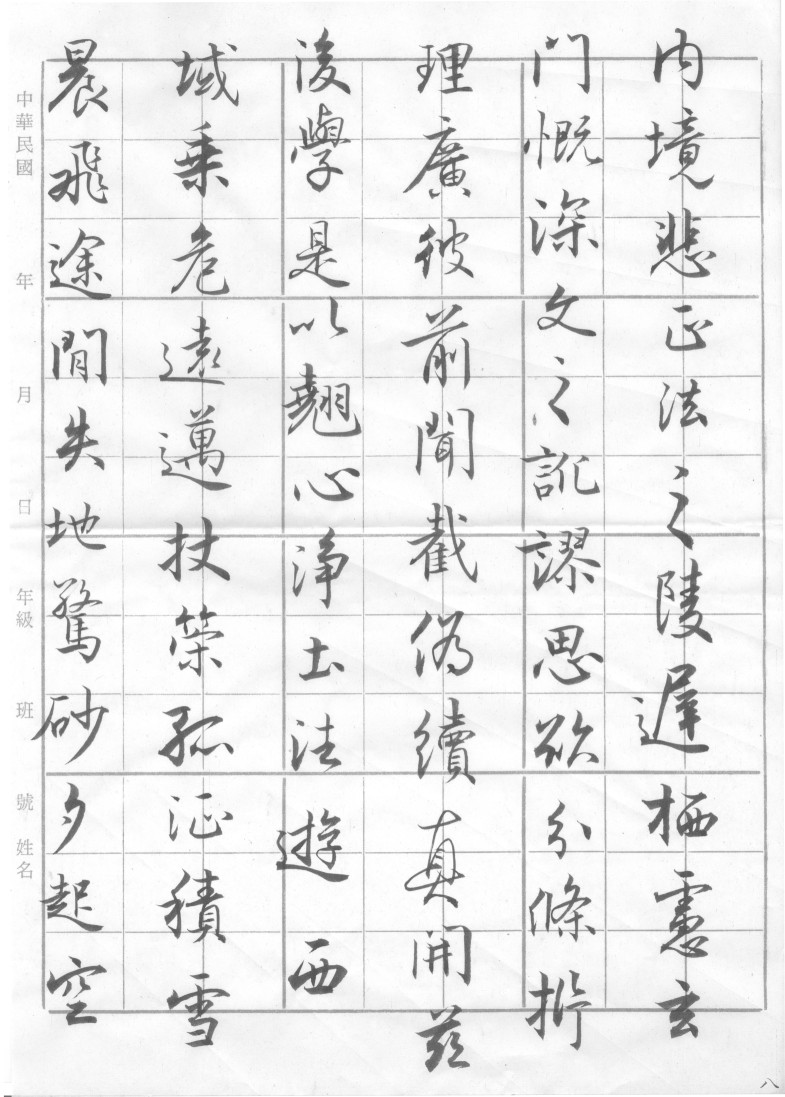 内境悲正法之陵遲栖慮玄
門慨深文之訛謬思欲分條析
理廣彼前聞截偽續真開茲
後學是以翹心淨土法遊西
域乗危遠邁杖策孤征積雪
晨飛途間失地驚砂夕起空
中華民國 年 月 日 年級 班 號 姓名
八